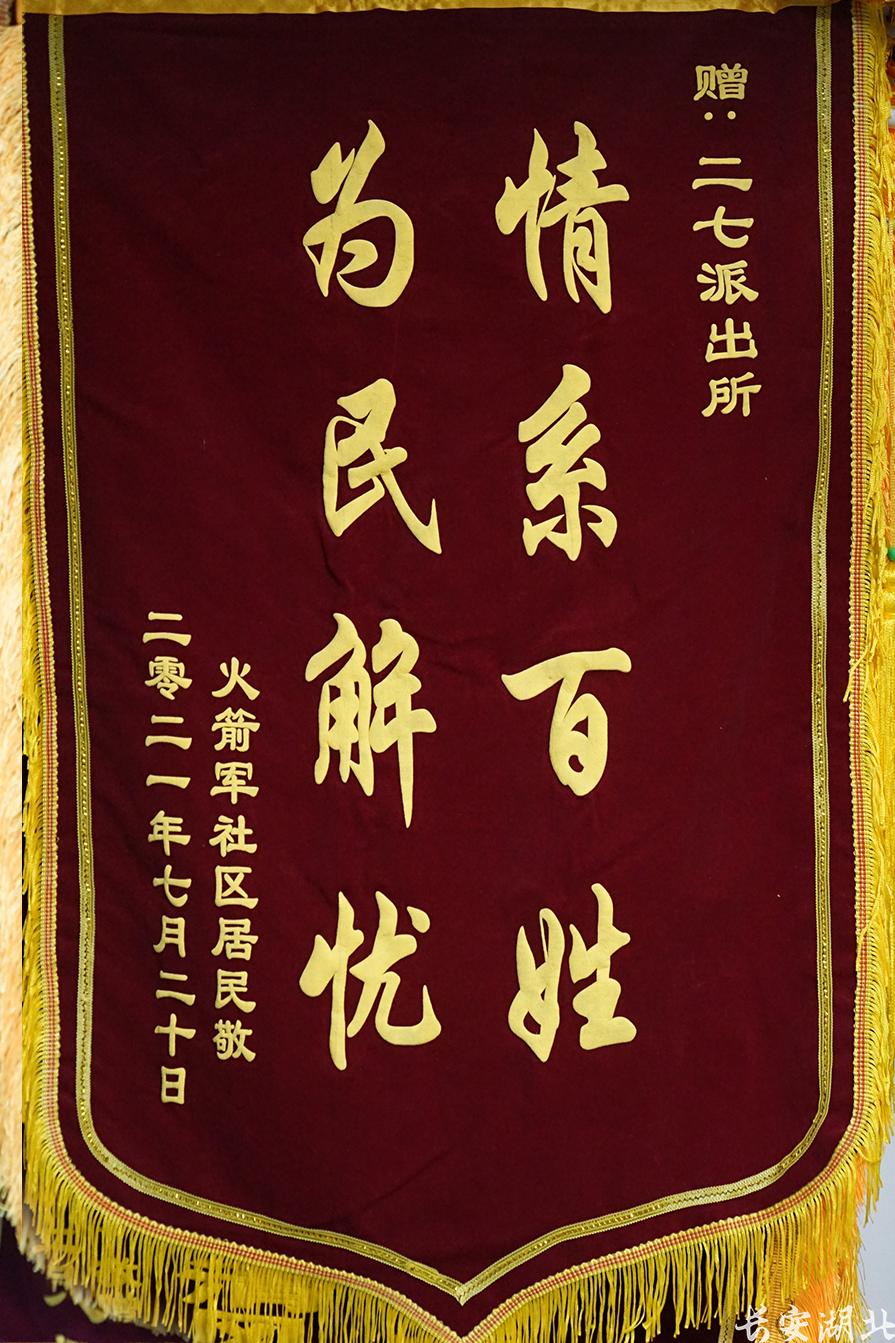 赠：二七派出所
情系百姓
为民解忧
火箭军社区居民敬
二零二一年七月二十日
长安湖北